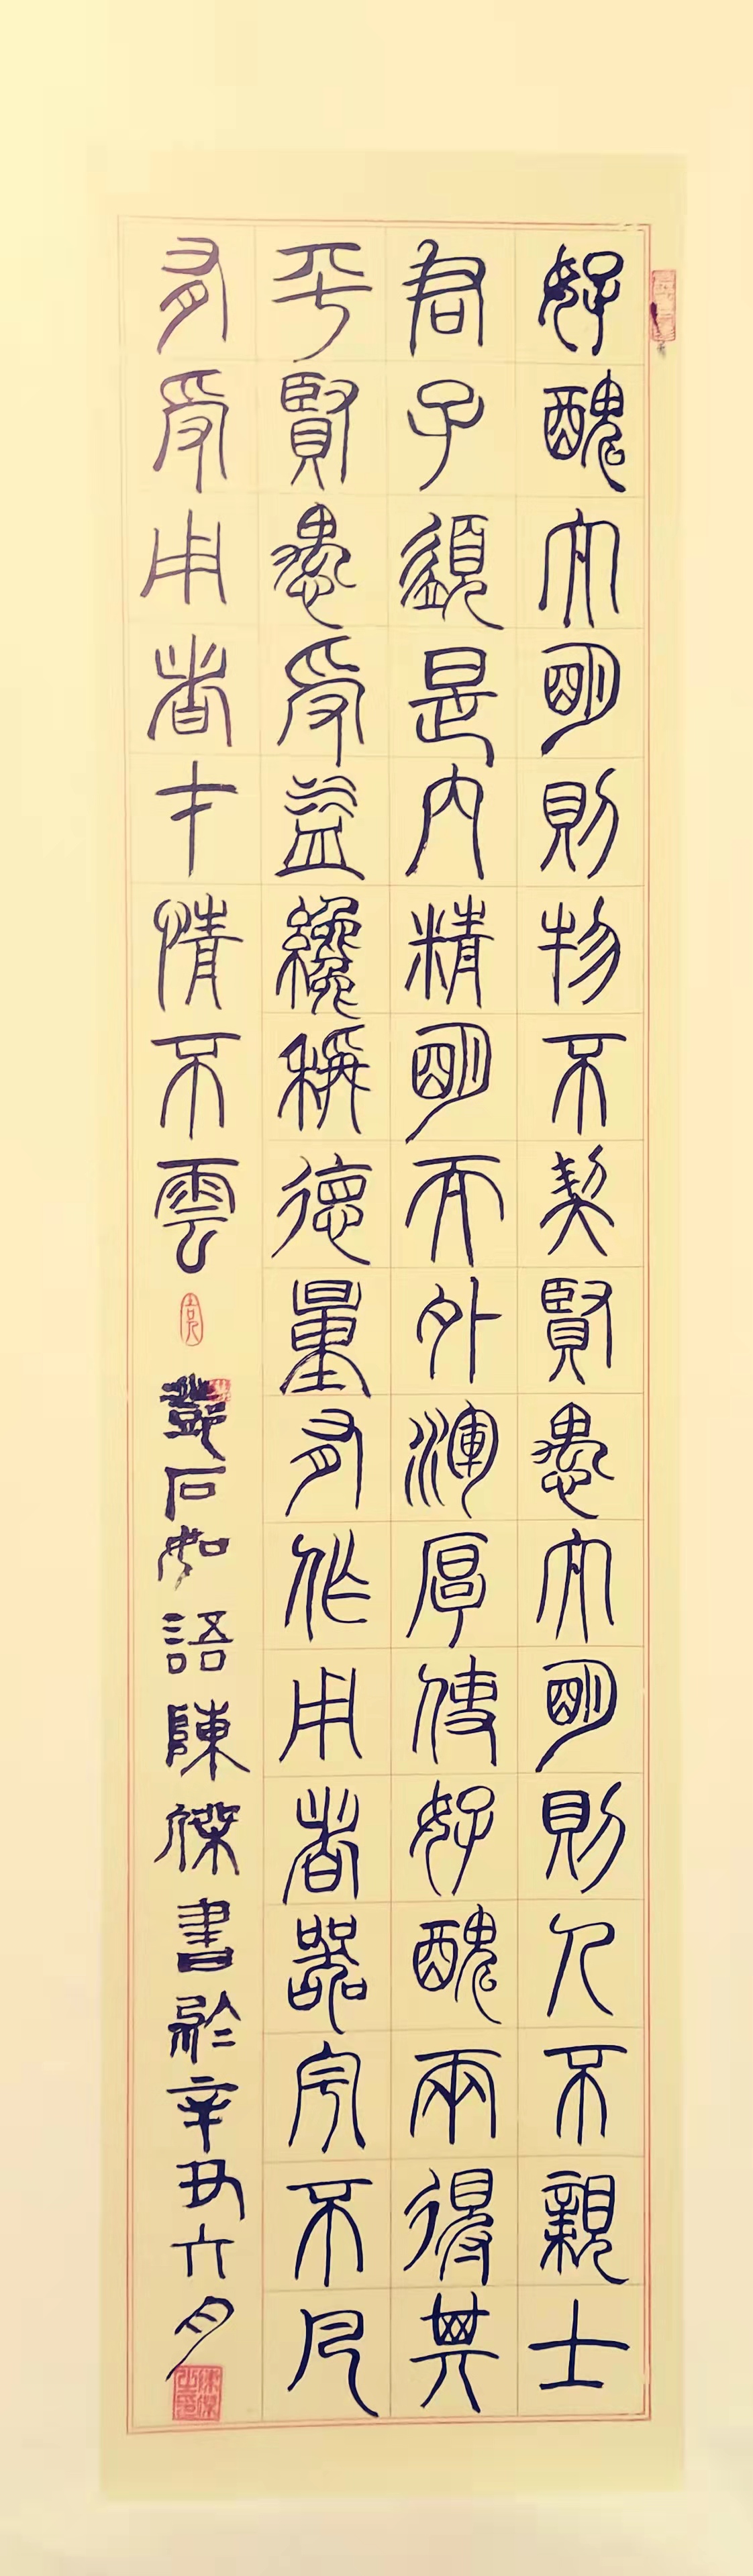 好醜太明則物不契賢愚太明則人不親士
君子須是内精明而外渾厚使好醜兩得其
平賢愚受益纔稱德量有作用者器宇不凡
有受用者才情不雲
鄧石如語陳傑書於辛丑六月